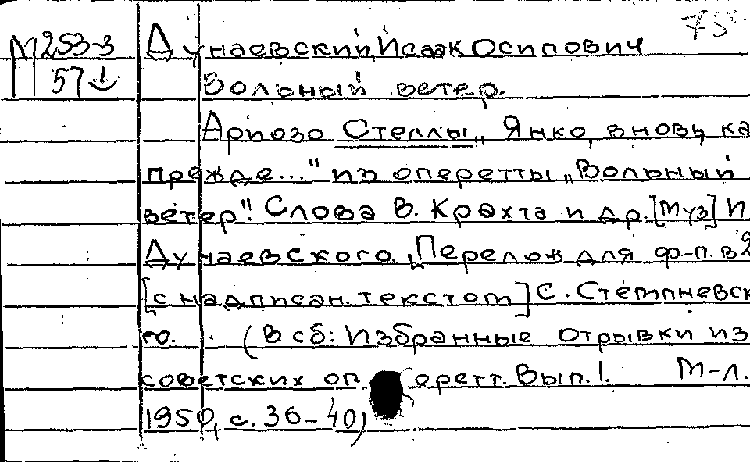 75
М253-3 Дунаевский, Исаак Осипович
57 Вольный ветер.
Ариозо Стеллы „Янко, вновь, ка
прежде..." из оперетты „Вольный
ветер". Слова В. Крахта и др. [Муз] И
Дунаевского. [Перелож для ф-п. в 2
[с надписан. текстом] С. Стемпневск
го. (В сб: Избранные отрывки из
советских оп еретт. Вып. I. М-Л.
1950, с. 36-40)